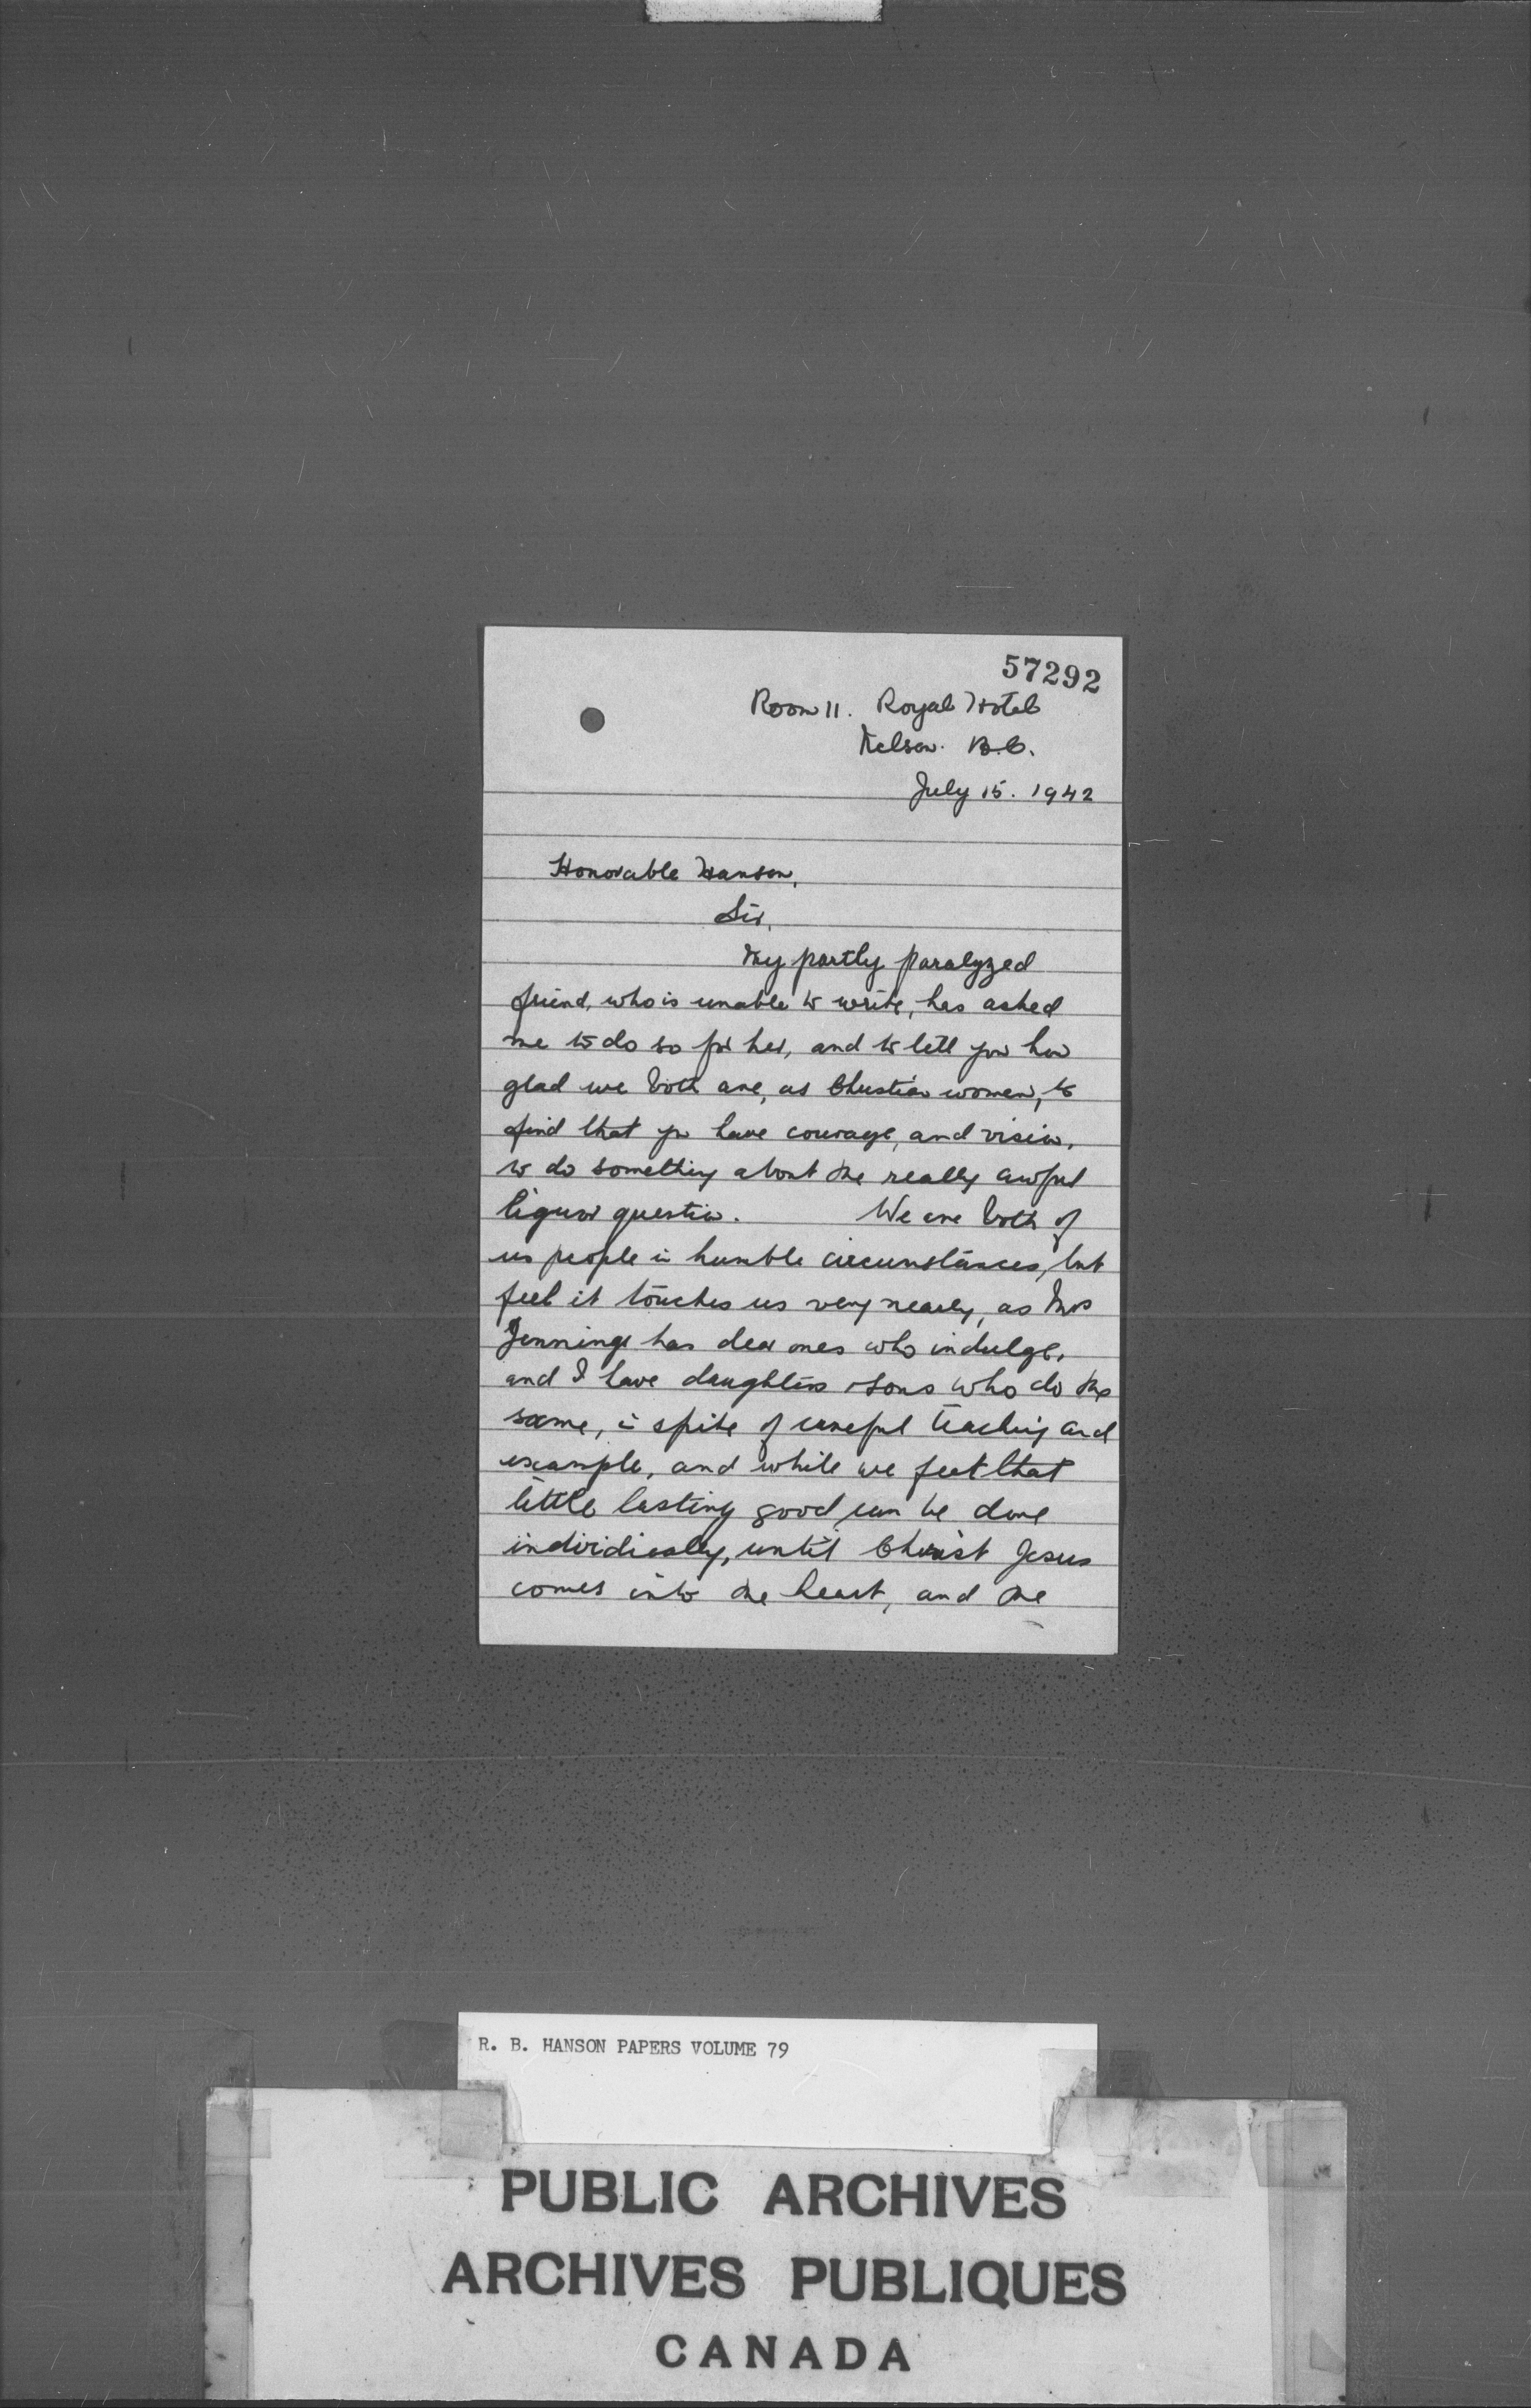 57292
Room 11. Royal Hotel
Nelson. B.C.
July 15. 1942
Honorable Hanson,
Sir,
My partly paralyzed
friend, who is unable to write, has asked
me to do so for her, and to tell you how
glad we both are, as Christian women, to
find that you have courage, and vision,
to do something about the really awful
liquor question. We are both of
us people in humble circumstances, but
feel it touches us very nearly, as Mrs
Jennings has dear ones who indulge,
and I have daughters & sons who do the
same, in spite of careful teaching and
example, and while we feel that
little lasting good can be done
individually, until Christ Jesus
comes into the heart, and the
R. B. HANSON PAPERS VOLUME 79
PUBLIC ARCHIVES
ARCHIVES PUBLIQUES
CANADA